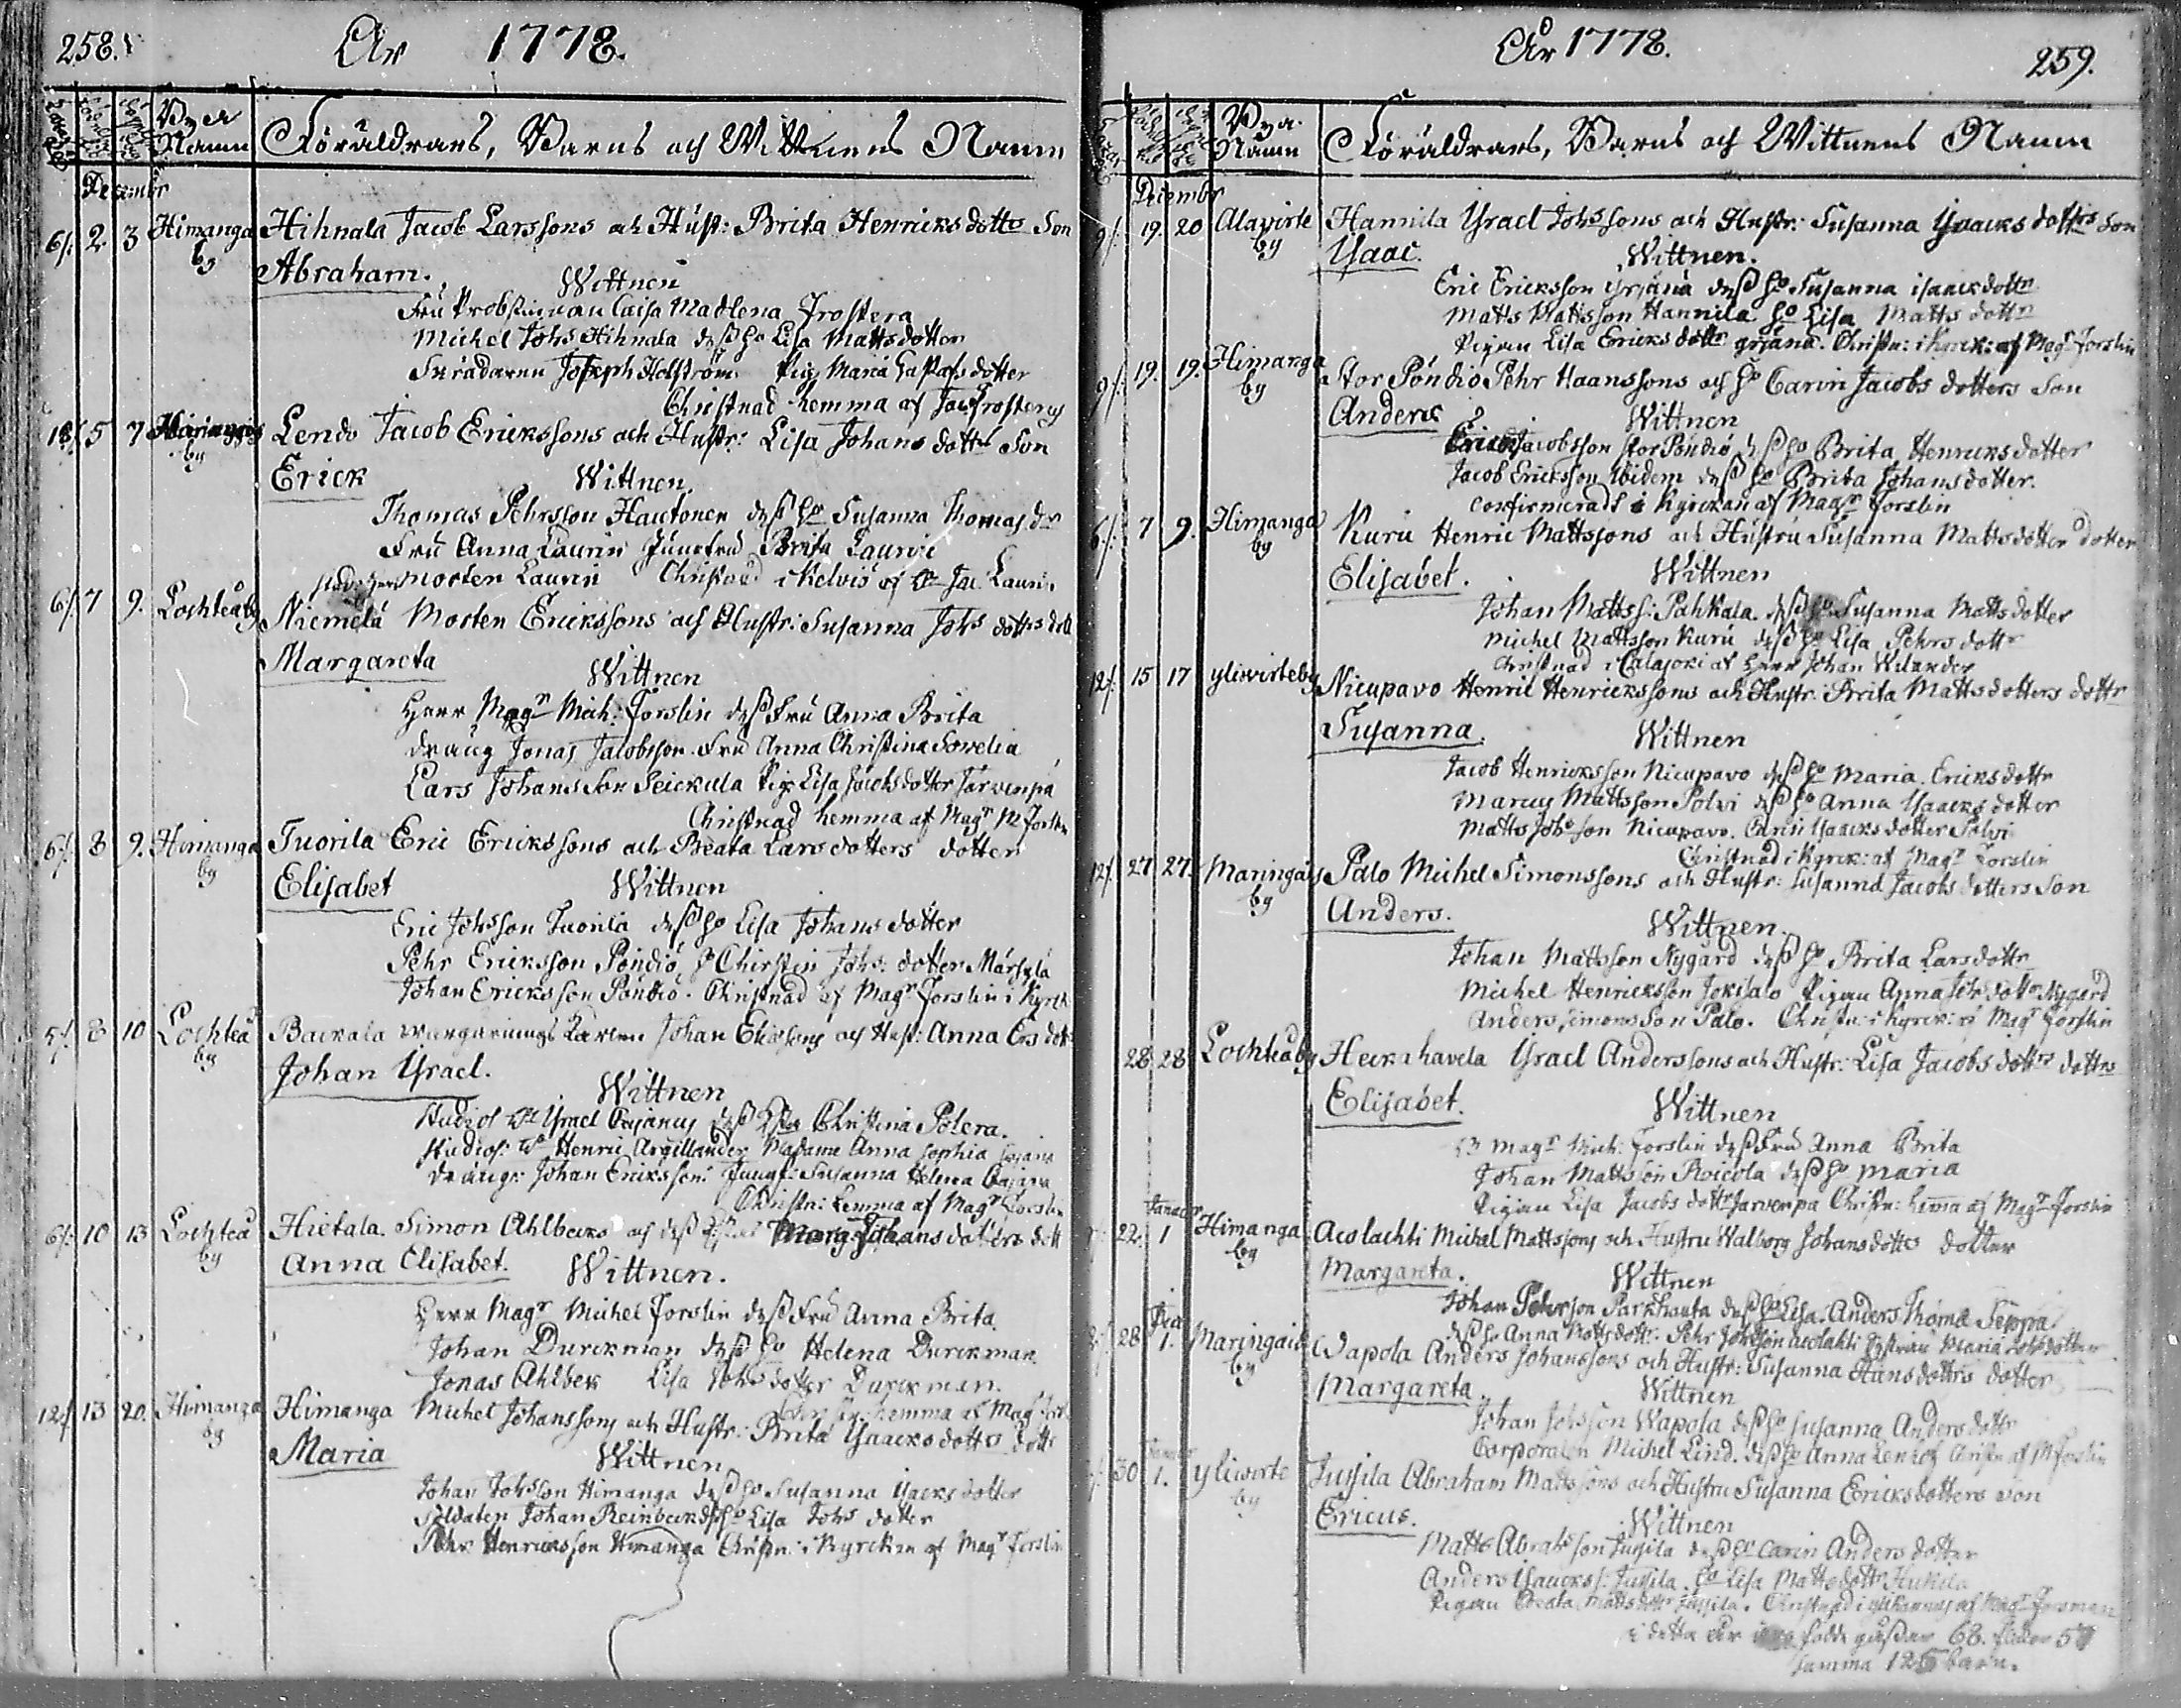 258.
År 1778.
Bya Namn
Föräldrars, Barns och Wittnens Namn
Decembr
6/. 2 3 Himanga by Hihnala Jacob Larssons och Hust: Brita Henricksdotts Son
Abraham. Wittnen
Fru Probstinnan Caisa Madlena Frostera
Michel Johs Hihnala dess ho Lisa Mattsdotter
Skrädaren Joseph Holström Pig: Maria dotter
Christnad hemma af Jac Frosterus
5 7 by Lendo Jacob Erickssons och Hustr: Lisa Johans dottrs Son
Erick Wittnen
Thomas Pehrsson Hautonen dess ho Susanna Thomas dr
Fru Anna Laurin Jungfru Brita Laurin
Morten Laurin Christnad i Kelvio af Jac Laurin
6/. 7 9. Lochteåby Niemelä Morten Erickssons och Hustr: Susanna Johs dotters dott
Margareta Wittnen
Herr Magr Mich: Forslin dess Fru Anna Brita
dräng Jonas Jacobsson Fru Anna Christina Sovelia
Lars Johansson Peickula Pig: Lisa Jacobsdotter Jarvenpä
Christnad hemma af Magr M Forslin
6/. 8 9. Himanga by Tuorila Eric Erickssons och Beata Larsdotters dotter
Elisabet Wittnen
Eric Johsson Tuorila dess ho Lisa Johans dotter
Pehr Ericksson Pöndiö, ho Chirstin Johs: dotter Märsylä
Johan Ericksson Pöndiö. Christnad af Magr Forslin i Kyrck
5/. 8 10 Lochteå by Backala Johan och Hust: Anna Ers dott
Johan Ysrael. Wittnen
Studios Ysrael Cajanus dess Christina Polera.
Studios: Henric Argillander Madame Anna Sophia Cajana
dräng: Johan Ericksson: Jungf: Susanna Helena Cajana
Christn: hemma af Magr Forslin
6/. 10 13 Lochteå by Hietala Simon Ahlbecks och dess Marg: Johans dotters dott
Anna Elisabet. Wittnen.
Herr Magr Michel Forslin dess Fru Anna Brita
Johan Durckman dess ho Helena Durckman
Jonas Ahlbek Lisa Johs dotter Durckman.
hemma af Magr
12/. 13 20. Himanga by Himanga Michel Johanssons och Hustr: Brita Ysaacksdotts dottr
Maria Wittnen
Johan Johsson Himanga dess ho Susanna Ysacks dotter
Soldaten Johan Reinbeck dess ho Lisa Johs dotter
Pehr Henricksson Himanga Christn: i Kyrckan af Magr Forslin
År 1778.
259.
Bya Namn
Föräldrars, Barns och Wittnens Namn
Decembr
9/. 19. 20 Alavirte by Hannila Ysrael Johssons och Hustr: Susanna Ysaacks dottrs Son
Ysaac. Wittnen.
Eric Ericksson dess ho Susanna isaacksdottr
Matts Mattsson Hannila ho Lisa Matts dottr
Pigan Lisa Ericks dottr Christn: i Kyrck: af Magr Forslin
9/. 19. 19. Himanga by Stor Pöndiö Pehr Haanssons och ho Carin Jacobs dotters Son
Anders Wittnen
Eric Jacobsson Stor Pöndiö dess ho Brita Henricksdotter
Jacob Ericksson ibidem dess ho Brita Johansdotter.
Confirmerads i Kyrckan af Magr Forslin
6/. 7 9. Himanga by Kuru Henric Mattssons och Hustru Susanna Mattsdotter dotter
Elisabet. Wittnen
Johan Mattss: Pahkala dess ho Susanna Mattsdotter
Michel Mattsson Kuru dess ho Lisa Pehrs dottr
Christnad i Calajoki af Herr Johan Wilander
12/. 15 17 yliwirteby Nicupavo Henric Henrickssons och Hustr: Brita Mattsdotters dottr
Susanna. Wittnen
Jacob Henricksson Nicupavo dess ho Maria Ericksdottr
Marcus Mattsson Polvi dess ho Anna Ysaacks dotter
Matts Johsson Nicupavo. Carin Ysaacks dotter Polvi
Christnad i Kyrck: af Magr Forslin
12/. 27 27. Maringais by Palo Michel Simonssons och Hustr: Susanna Jacobs dotters Son
Anders. Wittnen.
Johan Mattsson Nygård dess ho Brita Larsdottr
Michel Henricksson Jokisalo Pigan Anna Johs dottr Nygård
Anders Simonsson Palo. Christn: i Kyrck: af Magr Forslin
28 28 Lochteåby Heckahavela Ysrael Anderssons och Hustr: Lisa Jacobs dottrs dottrs
Elisabet. Wittnen
Magr Mich: Forslin dess Fru Anna Brita
Johan Mattsson Roicola dess ho Maria
Pigan Lisa Jacobs dottr Jarvenpä Christn: hema af Magr Forslin
Januar
22 1 Himanga by Acolachti Michel Mattssons och Hustru Walborg Johansdotts dotter
Margareta. Wittnen
Johan Pehrsson Parkhauta dess ho Lisa. Anders Thomæ Seppä
dess ho Anna Mattsdottr: Pehr Johsson Acolahti Hustrun Maria Johs dotter
28 1. Maringais by Wapola Anders Johanssons och Hustr: Susanna Hansdottrs dotter
Margareta. Wittnen
Johan Johsson Wapola dess ho Susanna Anders dottr
Corporalen Michel Lind. dess ho Anna Christn af M Forslin
30 1. yliwirte by Jussila Abraham Mattssons och Hustru Susanna Ericksdotters Son
Ericus. Wittnen
Matts Abrahsson Jussila dess ho Carin Anders dotter
Anders Ysaackss: Jussila ho Lisa Mattsdottr
Pigan Beata Mattsdottr Jussila. Christnad i af Magr Forsman
i detta år födde gåssar 68. flickor
Summa barn.